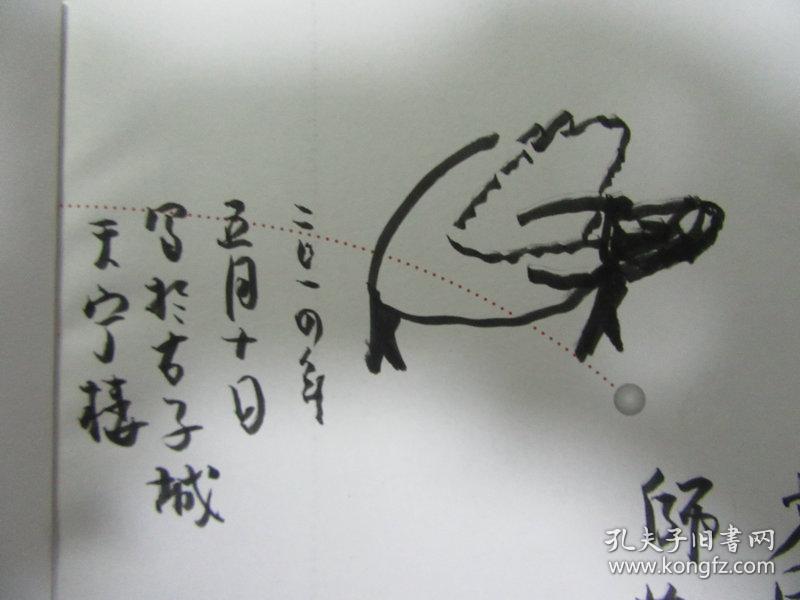 師
二〇一四年
五月十日
写於古子城
天宁楼
孔夫子旧書网
www.kongfz.com